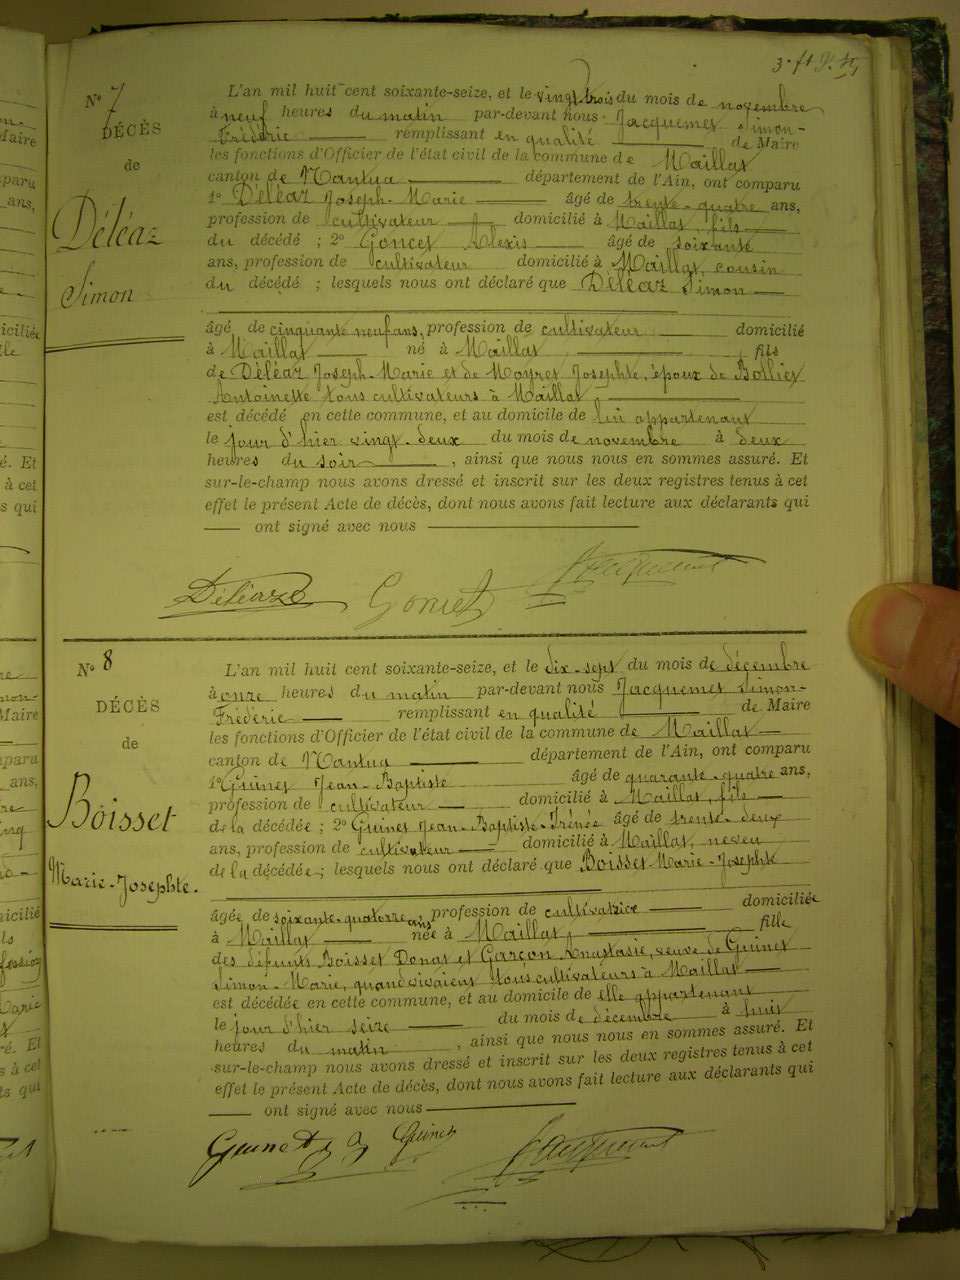 N° 7
DÉCÈS
de
Déléaz
Simon
L'an mil huit cent soixante-seize, et le vingt trois du mois de novembre
à neuf heures du matin par-devant nous Jacquemet Simon-
Frédéric remplissant en qualité de Maire
les fonctions d'Officier de l'état civil de la commune de Maillat
canton de Nantua département de l'Ain, ont comparu
1° Déléaz Joseph-Marie âgé de trente-quatre ans,
profession de cultivateur domicilié à Maillat, fils
du décédé ; 2° Goncet Alexis âgé de soixante
ans, profession de cultivateur domicilié à Maillat, cousin
du décédé ; lesquels nous ont déclaré que Déléaz Simon
âgé de cinquante neuf ans, profession de cultivateur domicilié
à Maillat né à Maillat, fils
de Déléaz Joseph-Marie et de Moyret Josephte, époux de Bolliet
Antoinette tous cultivateurs à Maillat
est décédé en cette commune, et au domicile de lui appartenant
le jour d'hier vingt-deux du mois de novembre à deux
heures du soir, ainsi que nous nous en sommes assuré. Et
sur-le-champ nous avons dressé et inscrit sur les deux registres tenus à cet
effet le présent Acte de décès, dont nous avons fait lecture aux déclarants qui
ont signé avec nous
Déléaz Goncet Jacquemet
N° 8
DÉCÈS
de
Boisset
Marie-Josephte.
L'an mil huit cent soixante-seize, et le dix-sept du mois de décembre
à onze heures du matin par-devant nous Jacquemet Simon-
Frédéric remplissant en qualité de Maire
les fonctions d'Officier de l'état civil de la commune de Maillat
canton de Nantua département de l'Ain, ont comparu
1° Guinet Jean-Baptiste âgé de quarante-quatre ans,
profession de cultivateur domicilié à Maillat, fils
de la décédée ; 2° Guinet Jean-Baptiste-Irénée âgé de trente-deux
ans, profession de cultivateur domicilié à Maillat, neveu
de la décédée ; lesquels nous ont déclaré que Boisset Marie-Josephte
âgée de soixante-quatorze ans, profession de cultivatrice domiciliée
à Maillat née à Maillat, fille
des défunts Boisset Donat et Garçon Anastasie, veuve de Guinet
Simon-Marie, quand vivaient tous cultivateurs à Maillat
est décédée en cette commune, et au domicile de elle appartenant
le jour d'hier seize du mois de décembre à huit
heures du matin, ainsi que nous nous en sommes assuré. Et
sur-le-champ nous avons dressé et inscrit sur les deux registres tenus à cet
effet le présent Acte de décès, dont nous avons fait lecture aux déclarants qui
ont signé avec nous
Guinet Guinet Jacquemet